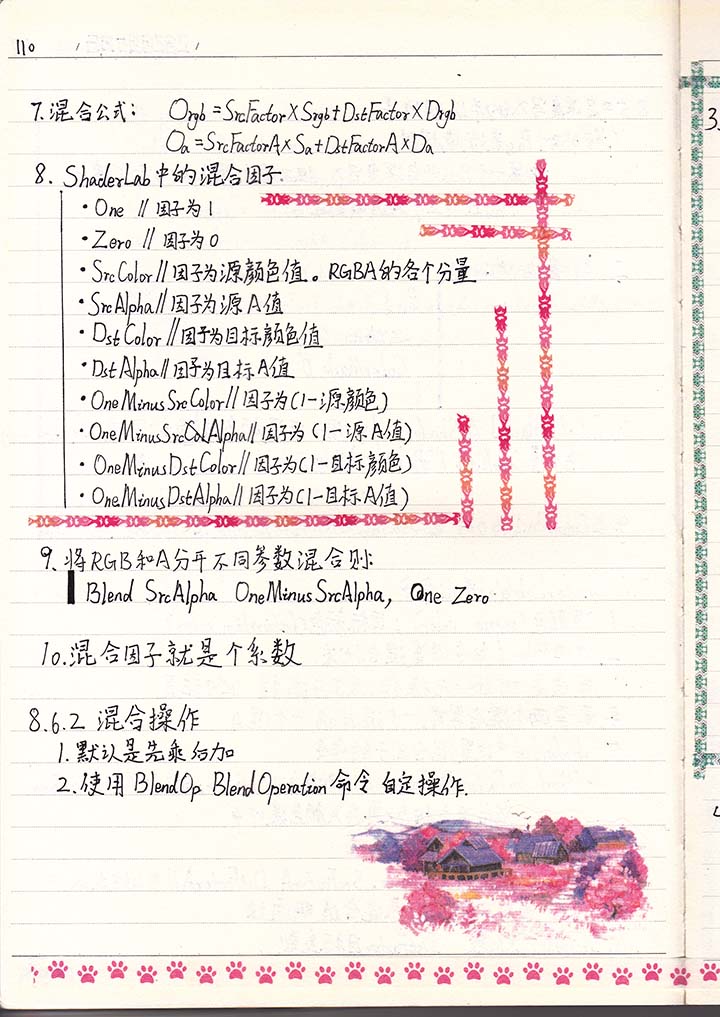 110
7.混合公式: Orgb=SrcFactor×Srgb+DstFactor×Drgb
Oa=SrcFactorA×Sa+DstFactorA×Da
8. ShaderLab中的混合因子
·One //因子为1
·Zero //因子为0
·SrcColor//因子为源颜色值。RGBA的各个分量
·SrcAlpha//因子为源A值
·DstColor//因子为目标颜色值
·DstAlpha//因子为目标A值
·OneMinusSrcColor//因子为(1-源颜色)
·OneMinusSrcAlpha//因子为(1-源A值)
·OneMinusDstColor//因子为(1-目标颜色)
·OneMinusDstAlpha//因子为(1-目标A值)
9.将RGB和A分开不同参数混合则:
Blend SrcAlpha OneMinusSrcAlpha, One Zero
10.混合因子就是个系数
8.6.2 混合操作
1.默认是先乘后加
2.使用BlendOp BlendOperation命令 自定操作.
3.